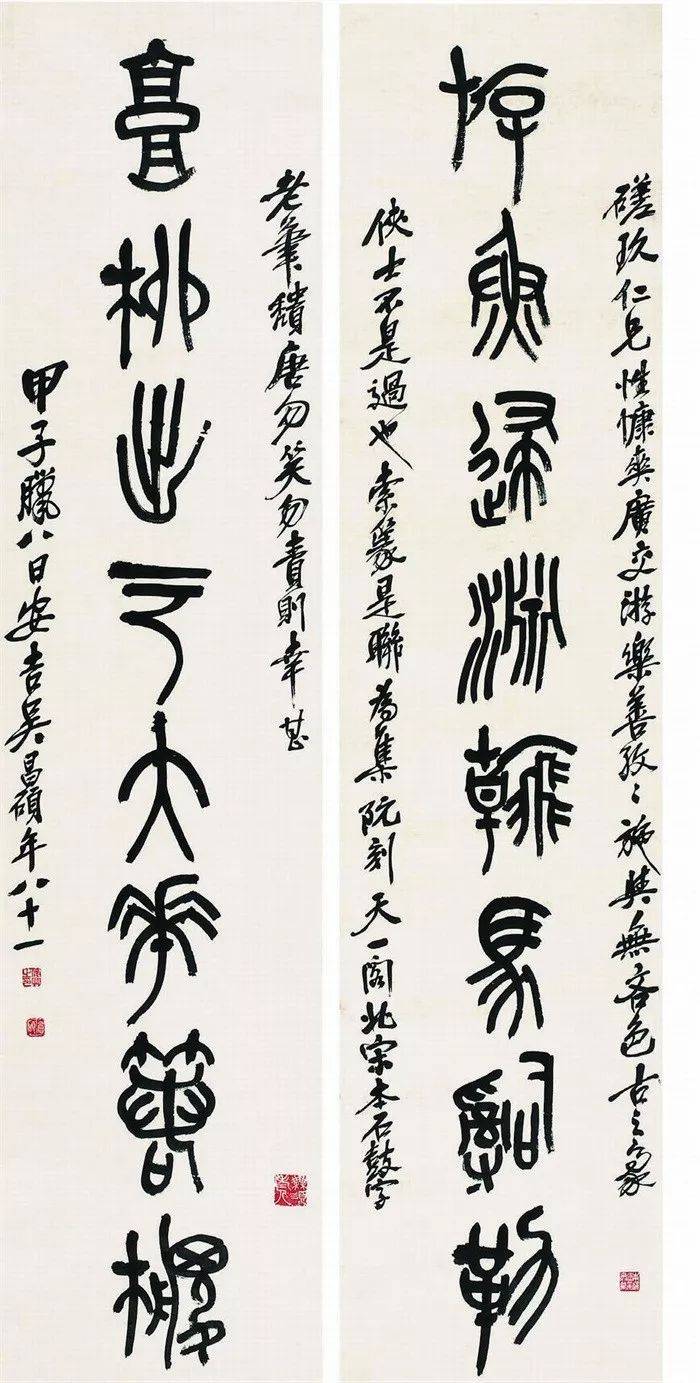 磋玖仁兄性慷爽廣交游樂善孜〻施與無吝色古之豪
斿魚歸淵翰馬辭勒
俠士不是過也索篆是聯為集阮刻天一閣北宋本石鼓字
老筆穨唐勿笑勿責則幸甚
柳出于大
甲子臘八日安吉吳昌碩年八十一